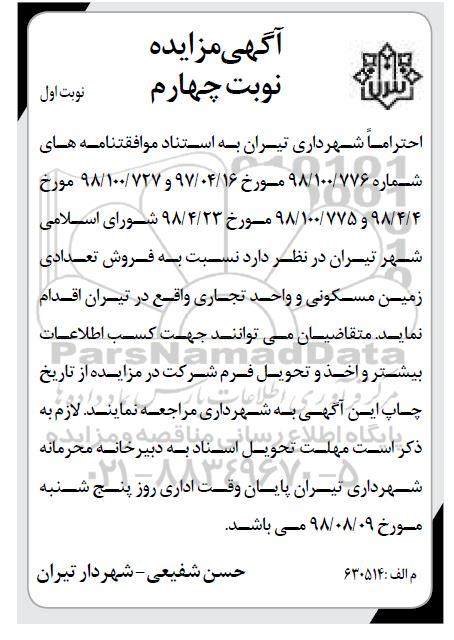 آگهی مزایده
نوبت چهارم
نوبت اول
احتراماً شهرداری تیران به استناد موافقتنامه های
شماره ۹۸/۱۰۰/۷۷۶ مورخ ۹۷/۰۴/۱۶ و ۹۸/۱۰۰/۷۲۷ مورخ
۹۸/۴/۴ و ۹۸/۱۰۰/۷۷۵ مورخ ۹۸/۴/۲۳ شورای اسلامی
شهر تیران در نظر دارد نسبت به فروش تعدادی
زمین مسکونی و واحد تجاری واقع در تیران اقدام
نماید. متقاضیان می توانند جهت کسب اطلاعات
بیشتر و اخذ و تحویل فرم شرکت در مزایده از تاریخ
چاپ این آگهی به شهرداری مراجعه نمایند. لازم به
ذکر است مهلت تحویل اسناد به دبیرخانه محرمانه
شهرداری تیران پایان وقت اداری روز پنج شنبه
مورخ ۹۸/۰۸/۰۹ می باشد.
م الف: ۶۳۰۵۱۴
حسن شفیعی - شهردار تیران
ParsNamadData
پایگاه اطلاع رسانی مناقصه و مزایده
۰۲۱-۸۸۳۴۹۶۷۰-۵